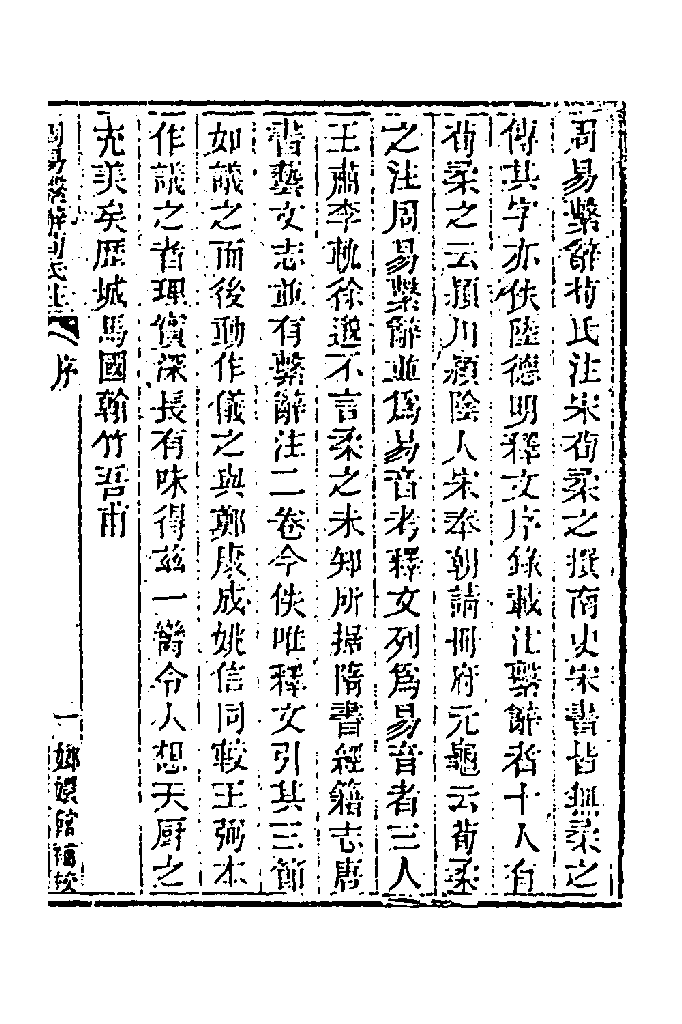 周易繫辭荀氏注宋荀柔之撰南史宋書皆無柔之
傳其字亦佚陸德明釋文序錄載注繫辭者十人有
荀柔之云潁川潁陰人宋奉朝請冊府元龜云荀柔
之注周易繫辭並爲易音考釋文列爲易音者三人
王肅李軌徐邈不言柔之未知所據隋書經籍志唐
書藝文志並有繫辭注二卷今佚唯釋文引其三節
如議之而後動作儀之與鄭康成姚信同較王弼本
作議之者理實深長有味得茲一臠令人想天厨之
充美矣歷城馬國翰竹吾甫
周易繫辭荀氏注 序 一 嫏嬛館補校